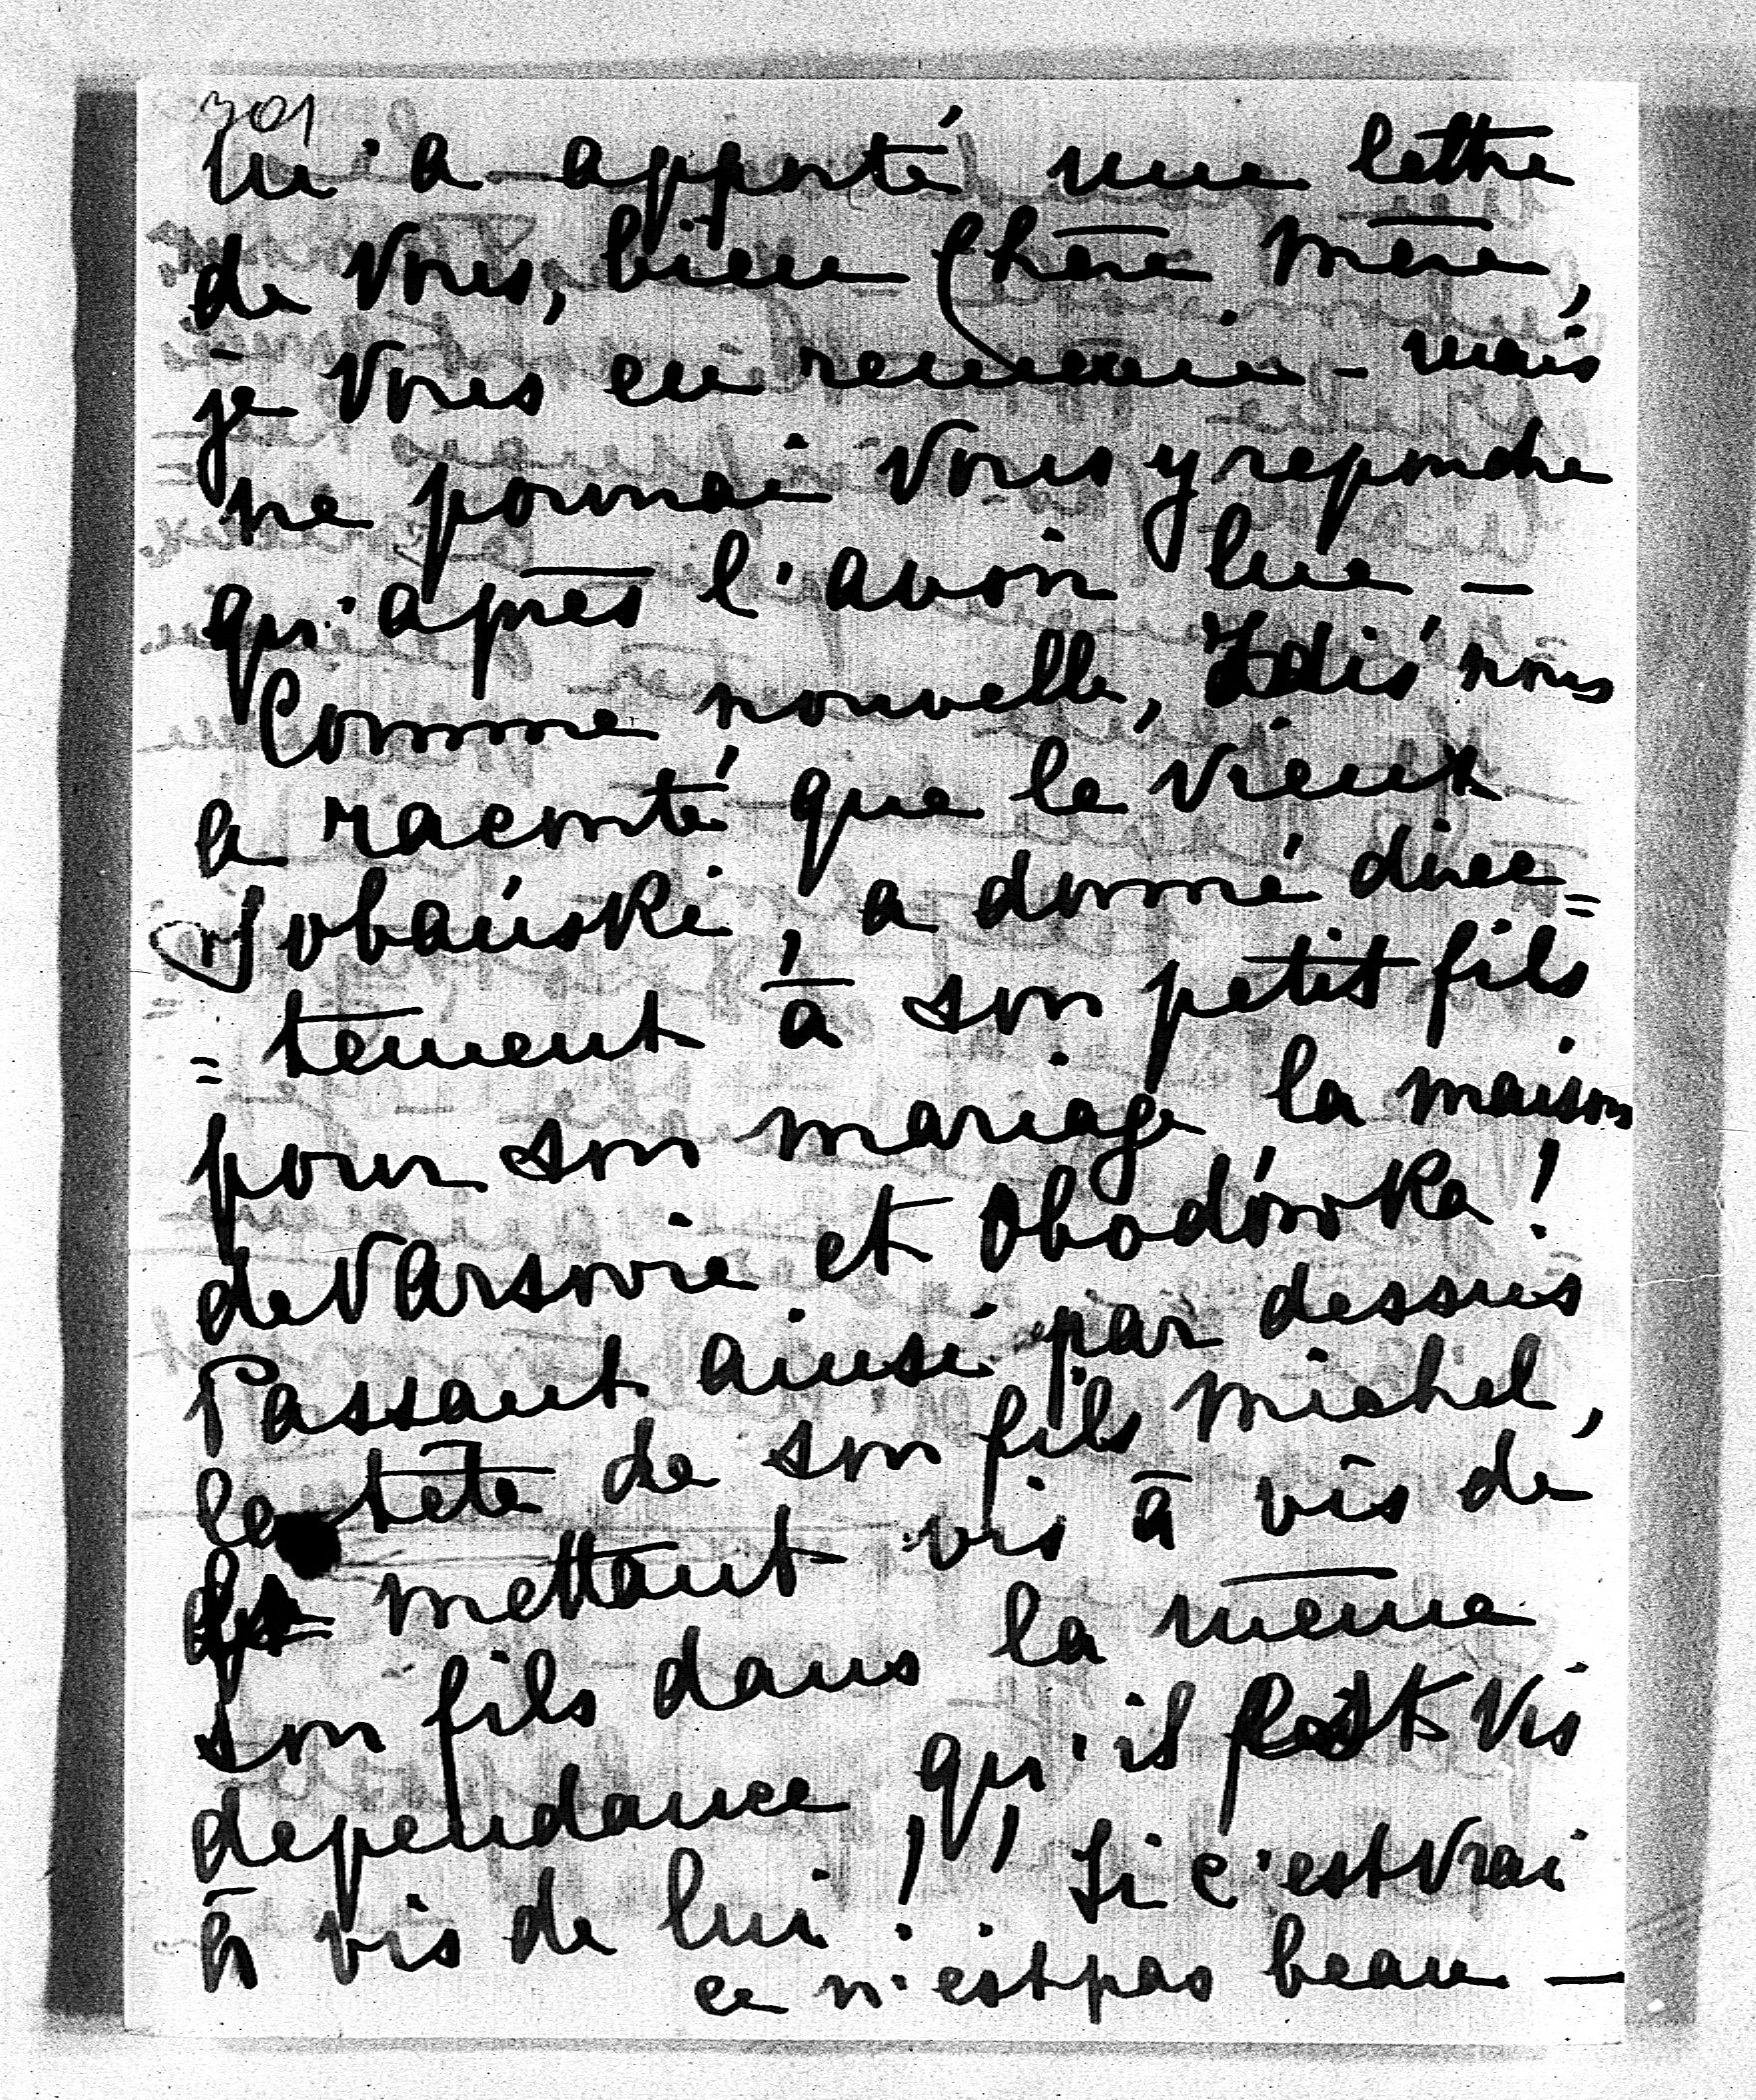 301
lui a apporté une lettre
de Vous, bien Chère Mère,
je Vous en remercie - mais
ne pourrai Vous y repondre
qu'après l'avoir lue –
Comme nouvelle, Zdiś nous
a raconté que le vieux
Sobański, a donné direc=
=tement à son petit fils
pour son mariage la maison
de Varsovie et Obodówka!
Passant ainsi par dessus
la tête de son fils Michel,
mettant vis à vis de
son fils dans la même
dependance qu'il est vis
à vis de lui!! Si c'est vrai
ce n'est pas beau –